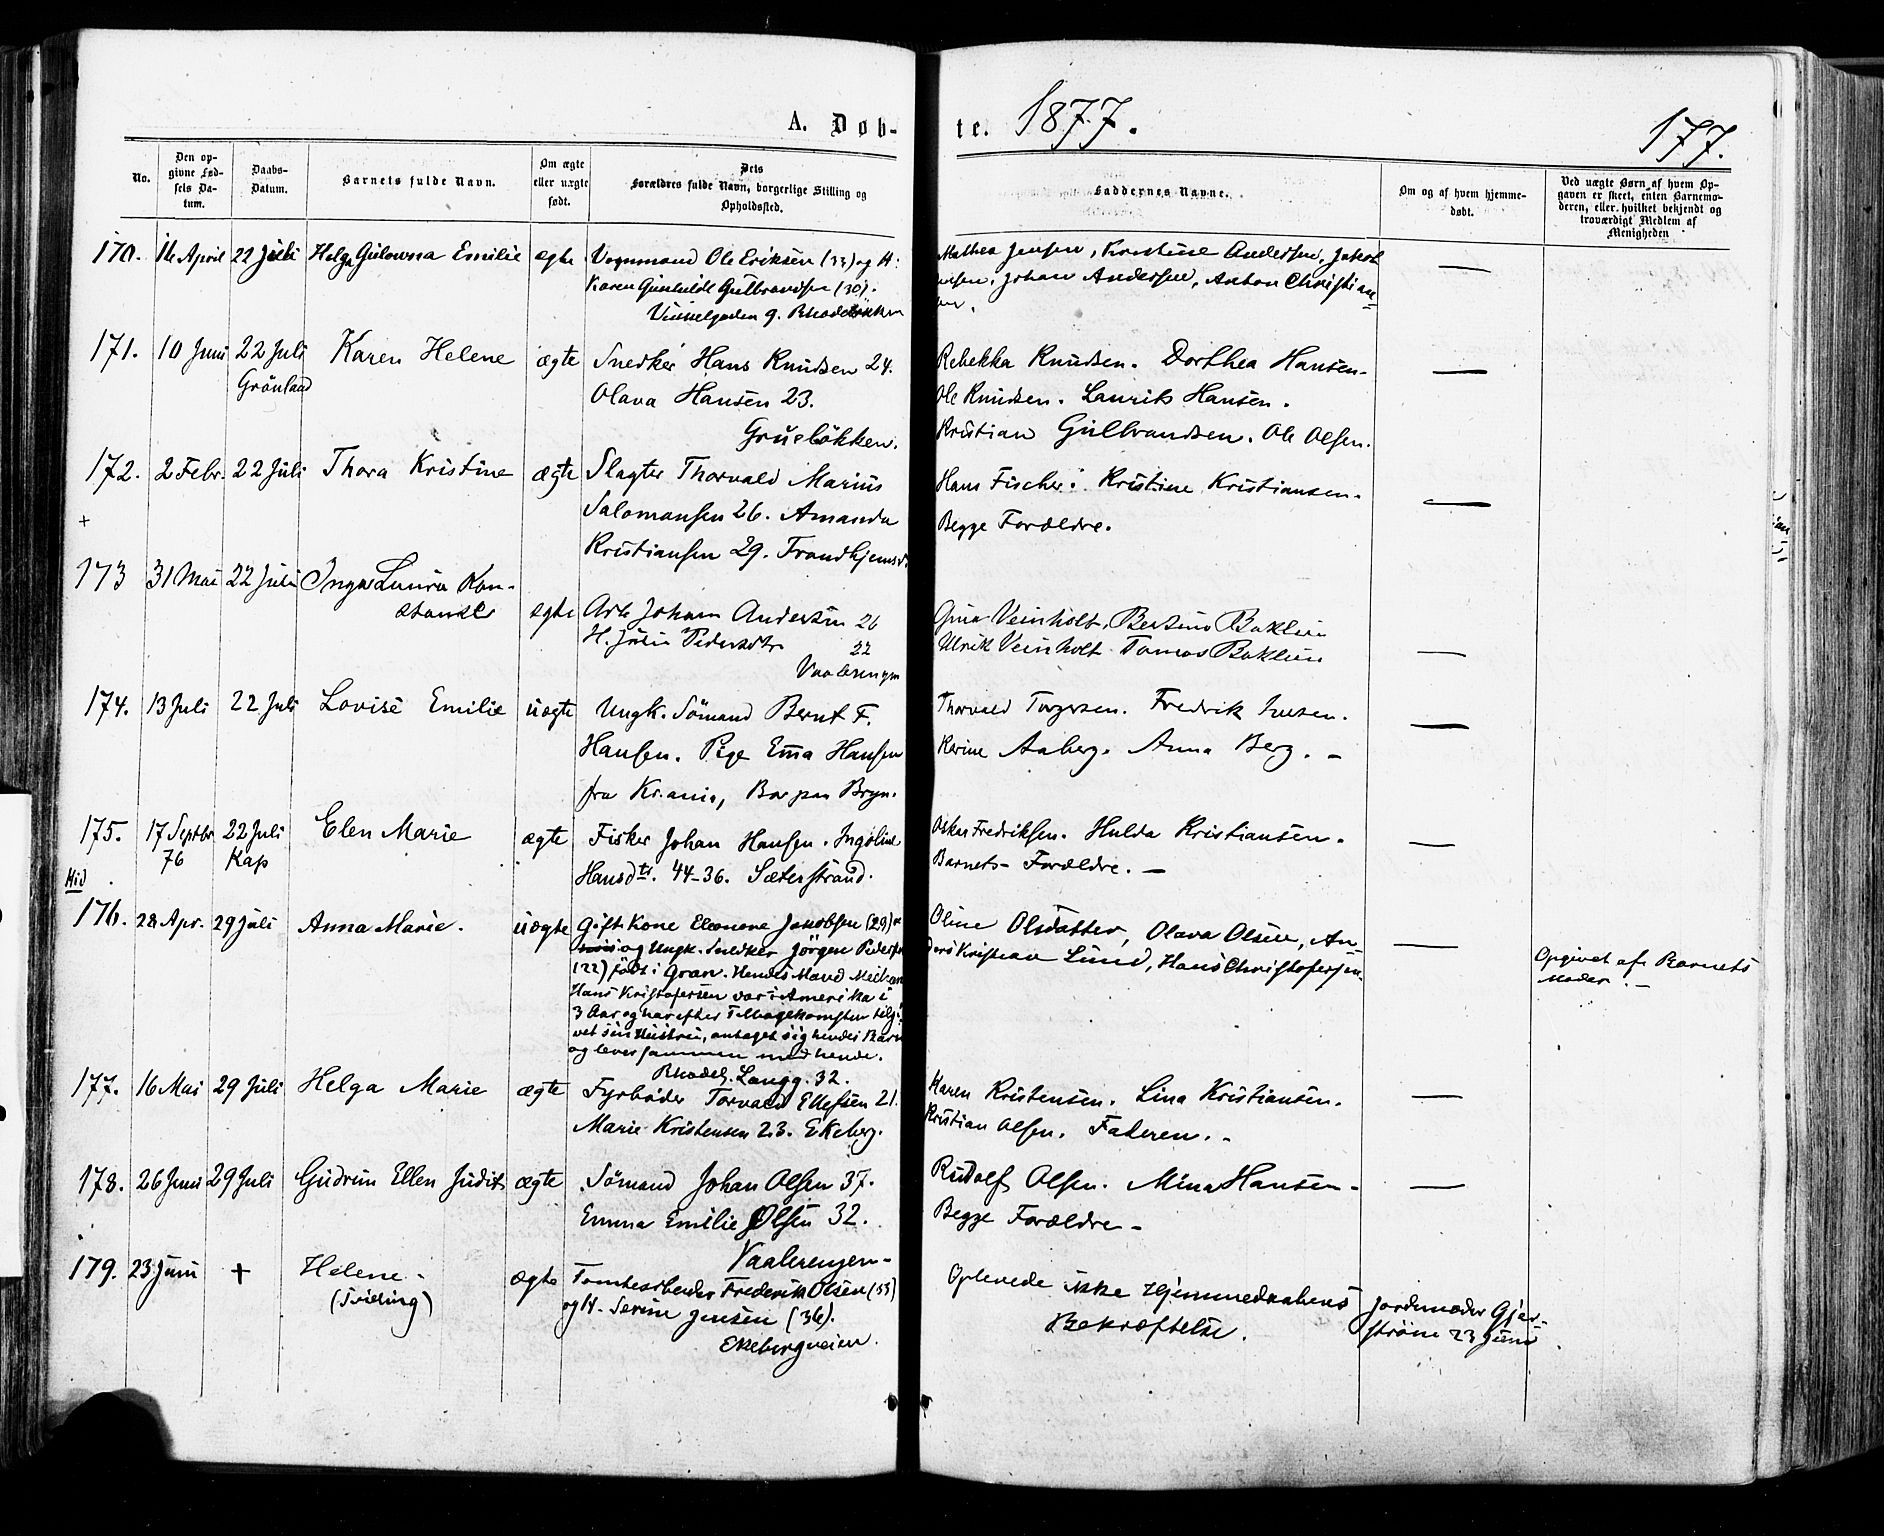 A. Døb-
te. 1877.
177.
No.
Den op-
givne Fød-
sels Da-
tum.
Daabs-
Datum.
Barnets fulde Navn.
Om ægte
eller uægte
født.
Dets
Forældres fulde Navn, borgerlige Stilling og
Opholdssted.
Faddernes Navne.
Om og af hvem hjemme-
døbt.
Ved uægte Børn, af hvem Op-
gaven er skeet, enten Barnemo-
deren, eller hvilket bekjendt og
troværdigt Medlem af
Menigheden
170. 16 April 22 Juli Helga Gulowna Emilie ægte Vognmand Ole Eriksen (33) og H:
Karen Gunhilde Gulbrandsen (30).
9. Rhodeløkken
Mathea Jensen, Kristine Andersen, Jakob
Johan Andersen, Anton Christian=
sen.
171. 10 Juni 22 Juli Karen Helene ægte Snedker Hans Knudsen 24.
Grönland
Olava Hansen 23.
Grueløkken.
Rebekka Knudsen. Dorthea Hansen.
Ole Knudsen. Laurits Hansen.
Kristian Gulbrandsen. Ole Olsen.
172. 2 Febr. 22 Juli Thora Kristine ægte Slagter Thorvald Marius
+
Salomonsen 26. Amanda
Kristiansen 29. Trondhjemsv.
Hans Fischer. Kristine Kristiansen.
Begge Forældre.
173 31 Mai 22 Juli Inga Laura Kon-
stanse ægte Arb Johan Andersen 26
H. Julie Pedersdtr 22
Vaalerengen
Gina Veinholt, Bertine Baklien
Ulrik Veinholt Tomas Baklien
174. 13 Juli 22 Juli Lovise Emilie uægte Ungk. Sömand Bernt F.
Hansen. Pige Emma Hansen
fra Kr.ania, Bor paa Bryn.
Thorvald Torgersen. Fredrik Iversen.
Karine Aaberg. Anna Berg. -
175. 17 Septbr 22 Juli Elen Marie ægte Fisker Johan Hansen. Ingoline
76 Kap
Hansdtr. 44-36. Sæterstrand.
Oskar Fredriksen. Hulda Kristiansen.
Barnets Forældre. -
176. 28 Apr. 29 Juli Anna Marie. uægte Gift Kone Eleonore Jakobsen (29)
og Ungk. Snedker Jörgen Peders
(22) født i Gran. Hendes Mand
Hans Kristofersen var i Amerika i
3 Aar og har efter Tilbagekomsten tilgi-
vet sin Hustru, antaget sig hendes Barn
og lever sammen med hende.
Rhodel. Langg. 32.
Oline Olsdatter, Olava Olsen, An-
ders Kristian Lund, Hans Christofersen.
Opgivet af Barnets
Moder. -
177. 16 Mai 29 Juli Helga Marie ægte Fyrbøder Torvald Ellefsen 21.
Marie Kristensen 23. Ekeberg.
Karen Kristensen. Lina Kristiansen.
Kristian Olsen. Faderen. -
178. 26 Juni 29 Juli Gudrun Ellen Judit ægte Sömand Johan Olsen 37.
Emma Emilie Olsen 32.
Vaalerengen-
Rudolf Olsen. Mina Hansen-
Begge Forældre -
179. 23 Juni + Helene - ægte Tomtearbeider Frederik Olsen (33)
(Tvilling)
og H. Serine Jensen (36).
Ekebergveien.
Oplevede ikke Hjemmedaabens
Bekræftelse.
Jordemoder Gjer-
strøm 23 Juni